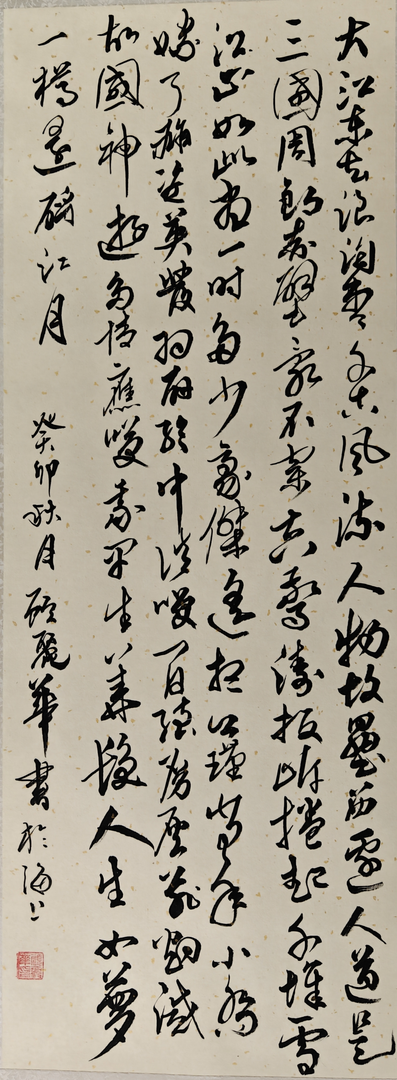 大江東去浪淘盡千古風流人物故壘西邊人道是
三國周郎赤壁亂石穿空驚濤拍岸捲起千堆雪
江山如此畫一時多少豪傑遙想公瑾當年小喬
嫁了雄姿英發羽扇綸巾談笑間檣櫓灰飛烟滅
故國神遊多情應笑我早生華髮人生如夢
一樽還酹江月 癸卯秋月顧麗華書於海上